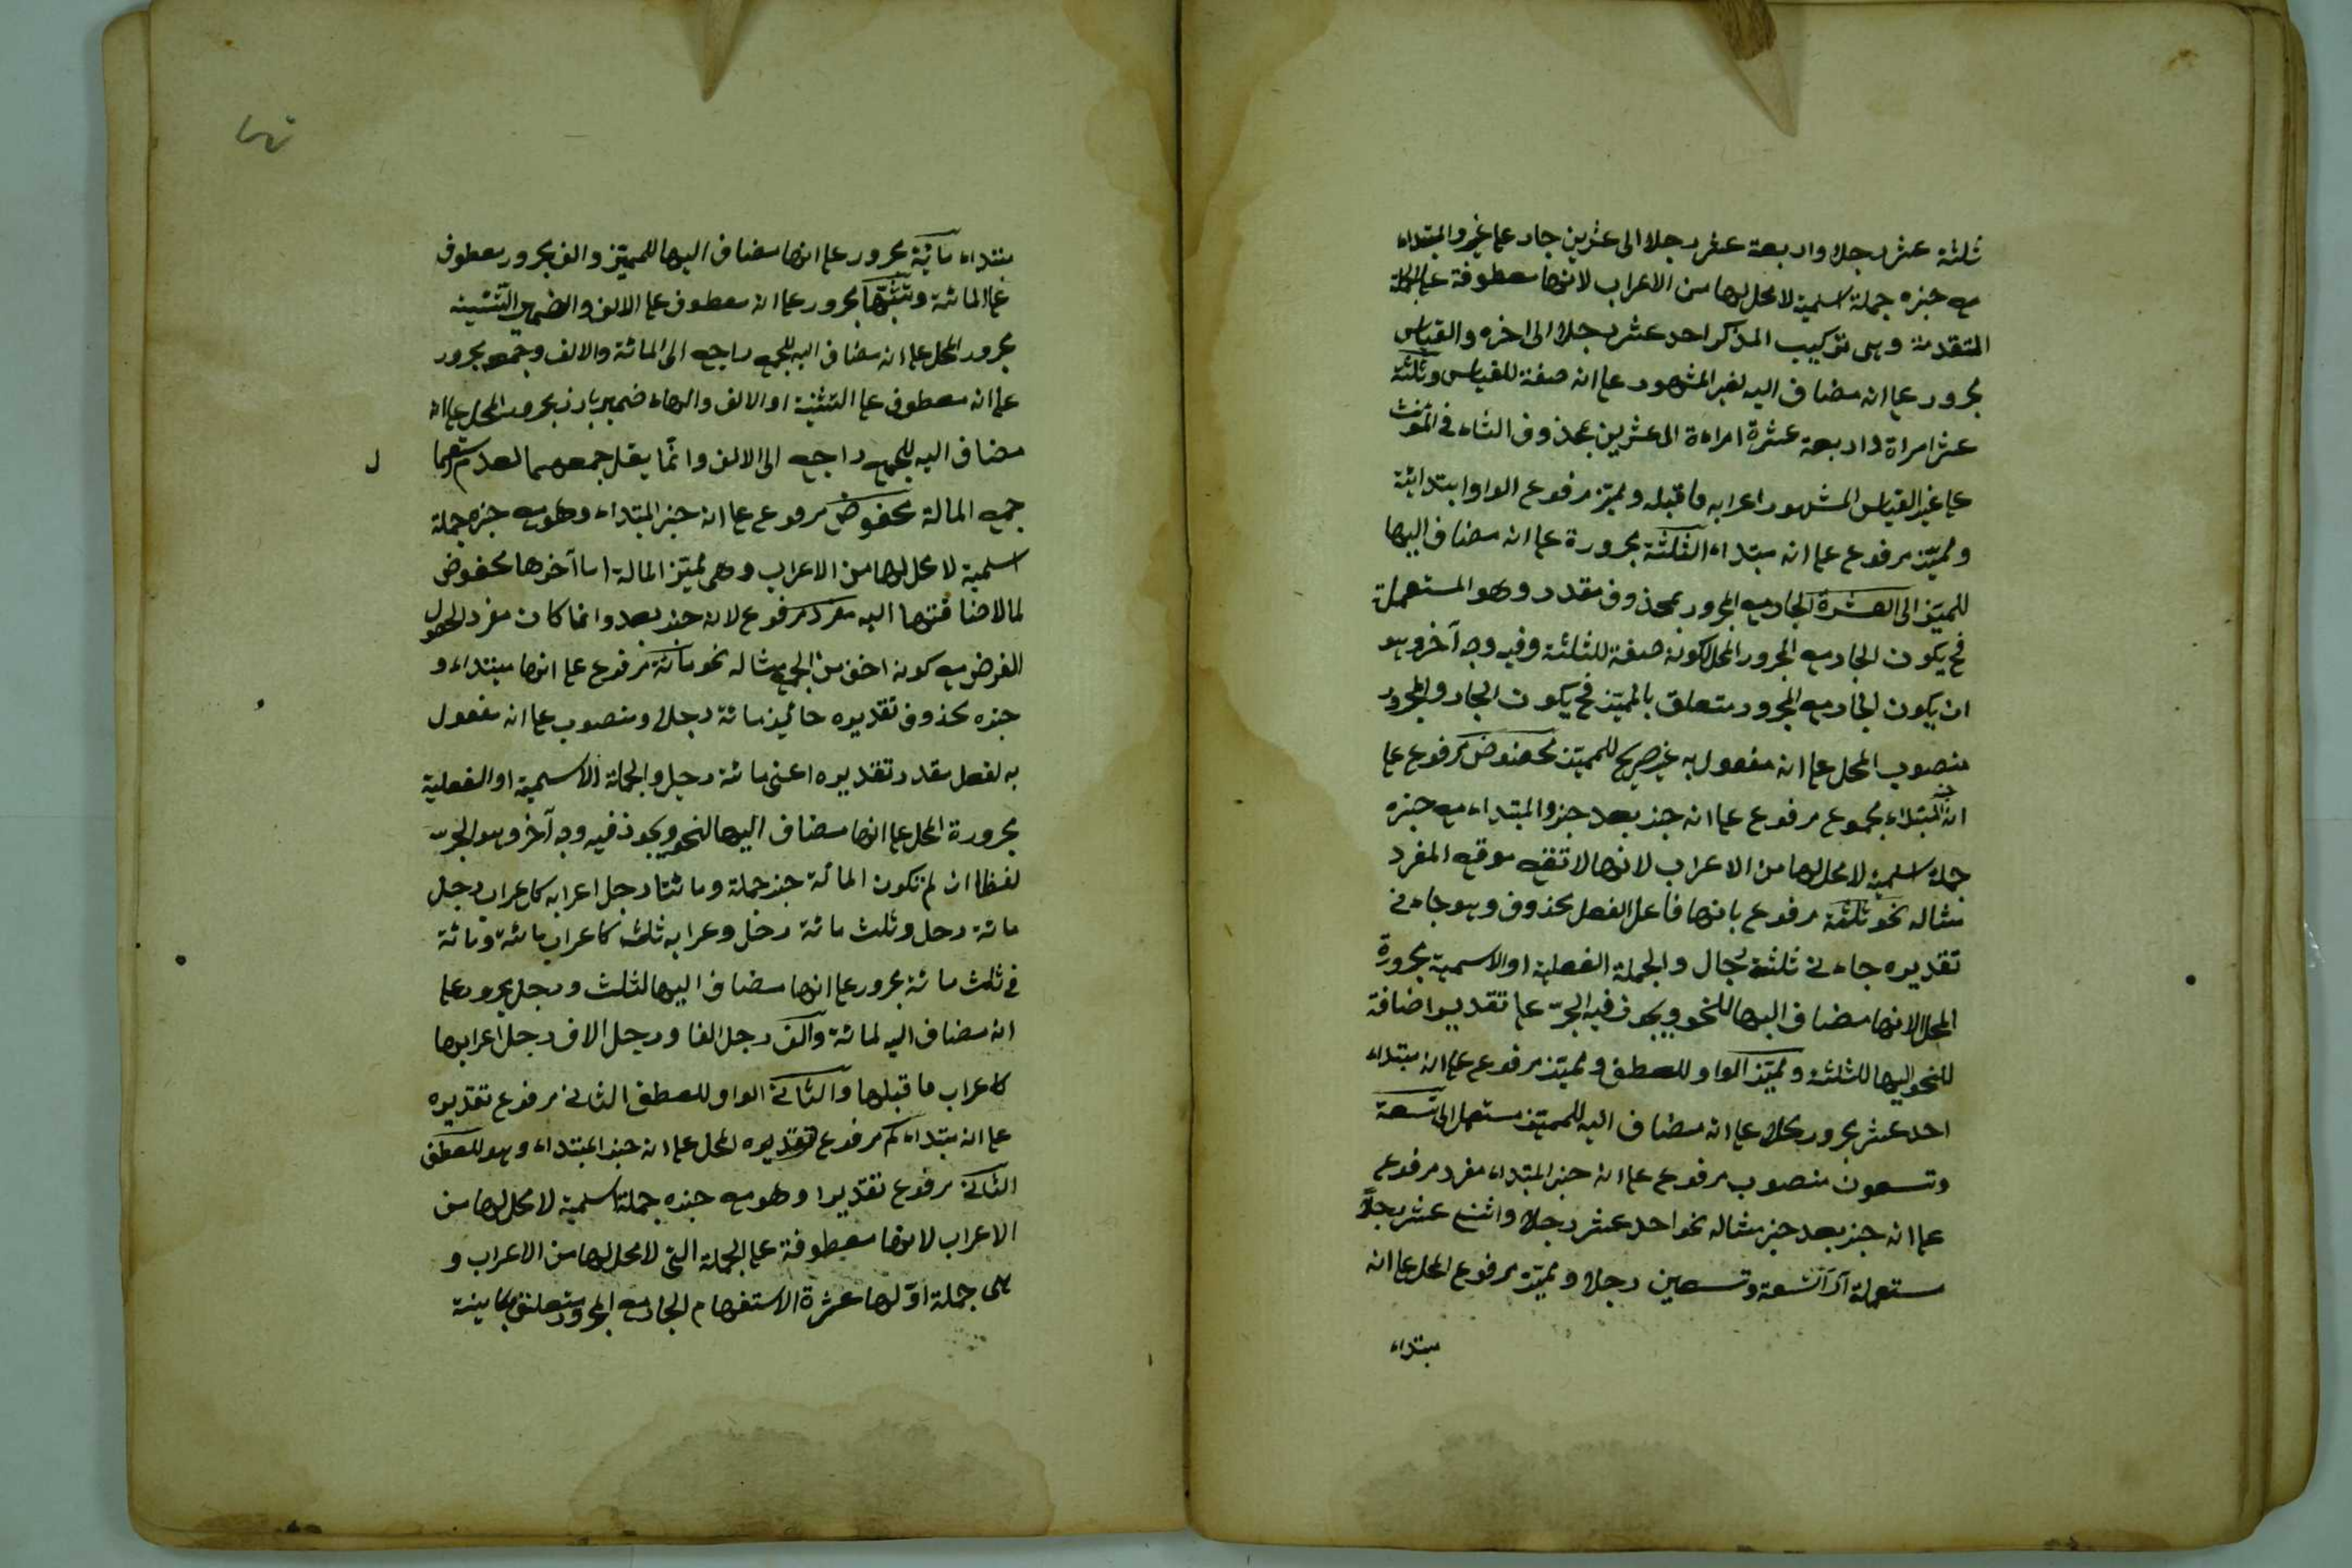 ثلثة عشر رجلا واربعة عشر رجلا الى عشرين جار على غير والمبتداء
مع خبره جملة اسمية لا محل لها من الاعراب لانها معطوفة على الجملة
المتقدمة وهى تركيب المذكر احد عشر رجلا الى اخره والقياس
مجرور على انه مضاف اليه لغير المشهور على انه صفة للقياس وثلثة
عشر امراة واربعة عشرة امراءة الى عشرين بمحذوف التاء فى المؤنث
على غير القياس المشهور اعرابه ما قبله ومميز مرفوع الواو ابتدائية
ومميّز مرفوع على انه مبتداء الثلثة مجرورة على انه مضاف اليها
للمميّز الى العشرة الجار مع المجرور بمحذوف مقدر وهو المستعملة
فح يكون الجار مع المجرور المحل لكونه صفة للثلثة وفيه وجه آخر وهو
ان يكون الجار مع المجرور متعلق بالمميّز فح يكون الجار والمجرور
منصوب المحل على انه مفعول به غير صريح للمميّز مخفوض مرفوع على
انه خبر المبتداء مجموع مرفوع على انه خبر بعد خبر والمبتداء مع خبره
جملة اسمية لا محل لها من الاعراب لانها لا تقع موقع المفرد
مثاله نحو ثلثة مرفوع بانها فاعل الفعل محذوف وهو جاءنى
تقديره جاءنى ثلثة رجال والجملة الفعلية او الاسمية مجرورة
المحل لانها مضاف اليها للنحو ويجوز فيه الجرّ على تقدير اضافة
للنحو اليها للثلثة ومميّز الواو للعطف ومميّز مرفوع على انه مبتداء
احد عشر مجرور محلا على انه مضاف اليه للمميّز مستعمل الى تسعة
وتسعون منصوب مرفوع على انه خبر المبتداء مفرد مرفوع
على انه خبر بعد خبر مثاله نحو احد عشر رجلا واثنى عشر رجلاً
مستعملة الى تسعة وتسعين رجلا ومميّز مرفوع المحل على انه
مبتداء
مبتداء مائة مجرور على انها مضاف اليها للمميّز والف مجرور معطوف
على المائة وتثنيتها مجرور على انه معطوف على الالف والضمير التثنية
مجرور المحل على انه مضاف اليه للجمع راجع الى المائة والالف وجمعه مجرور
على انه معطوف على التثنية او الالف والهاء ضمير بارز مجرور المحل على انه
مضاف اليه للجمع راجع الى الالف وانّما يقل جمعهما لعدم استعمال
جمع المائة مخفوض مرفوع على انه خبر المبتداء وهو مع خبره جملة
اسمية لا محل لها من الاعراب وهى مميّز المائة اما آخرها مخفوض
لما لاضافتها اليه مفرد مرفوع لانه خبر بعد وانما كان مفرد لحصول
الغرض مع كونه اخف من الجمع مثاله نحو مائة مرفوع على انها مبتداء و
خبره محذوف تقديره جاءنى مائة رجل ومنصوب على انه مفعول
به لفعل مقدر تقديره اعنى مائة رجل والجملة الاسمية او الفعلية
مجرورة المحل على انها مضاف اليها لنحو ويجوز فيه وجه آخر وهو الجرّ
لفظا ان لم تكون المائة خبر جملة ومائتا رجل اعرابه كاعراب رجل
مائة رجل وثلث مائة رجل وعرابه ثلث كاعراب مائة ومائة
فى ثلث مائة مجرور على انها مضاف اليها لثلث ورجل مجرور على
انه مضاف اليه لمائة والف رجل الفا ورجل الاف رجل اعرابها
كاعراب ما قبلها والثانى الواو للعطف الثانى مرفوع تقديره
على انه مبتداء كم مرفوع تقديره المحل على انه خبر المبتداء وهو للعطف
الثانى مرفوع تقديرا وهو مع خبره جملة اسمية لا محل لها من
الاعراب لانها معطوفة على الجملة التى لا محل لها من الاعراب و
هى جملة اوّلها عشرة الاستفهام الجار مع المجرور متعلق بكائنة